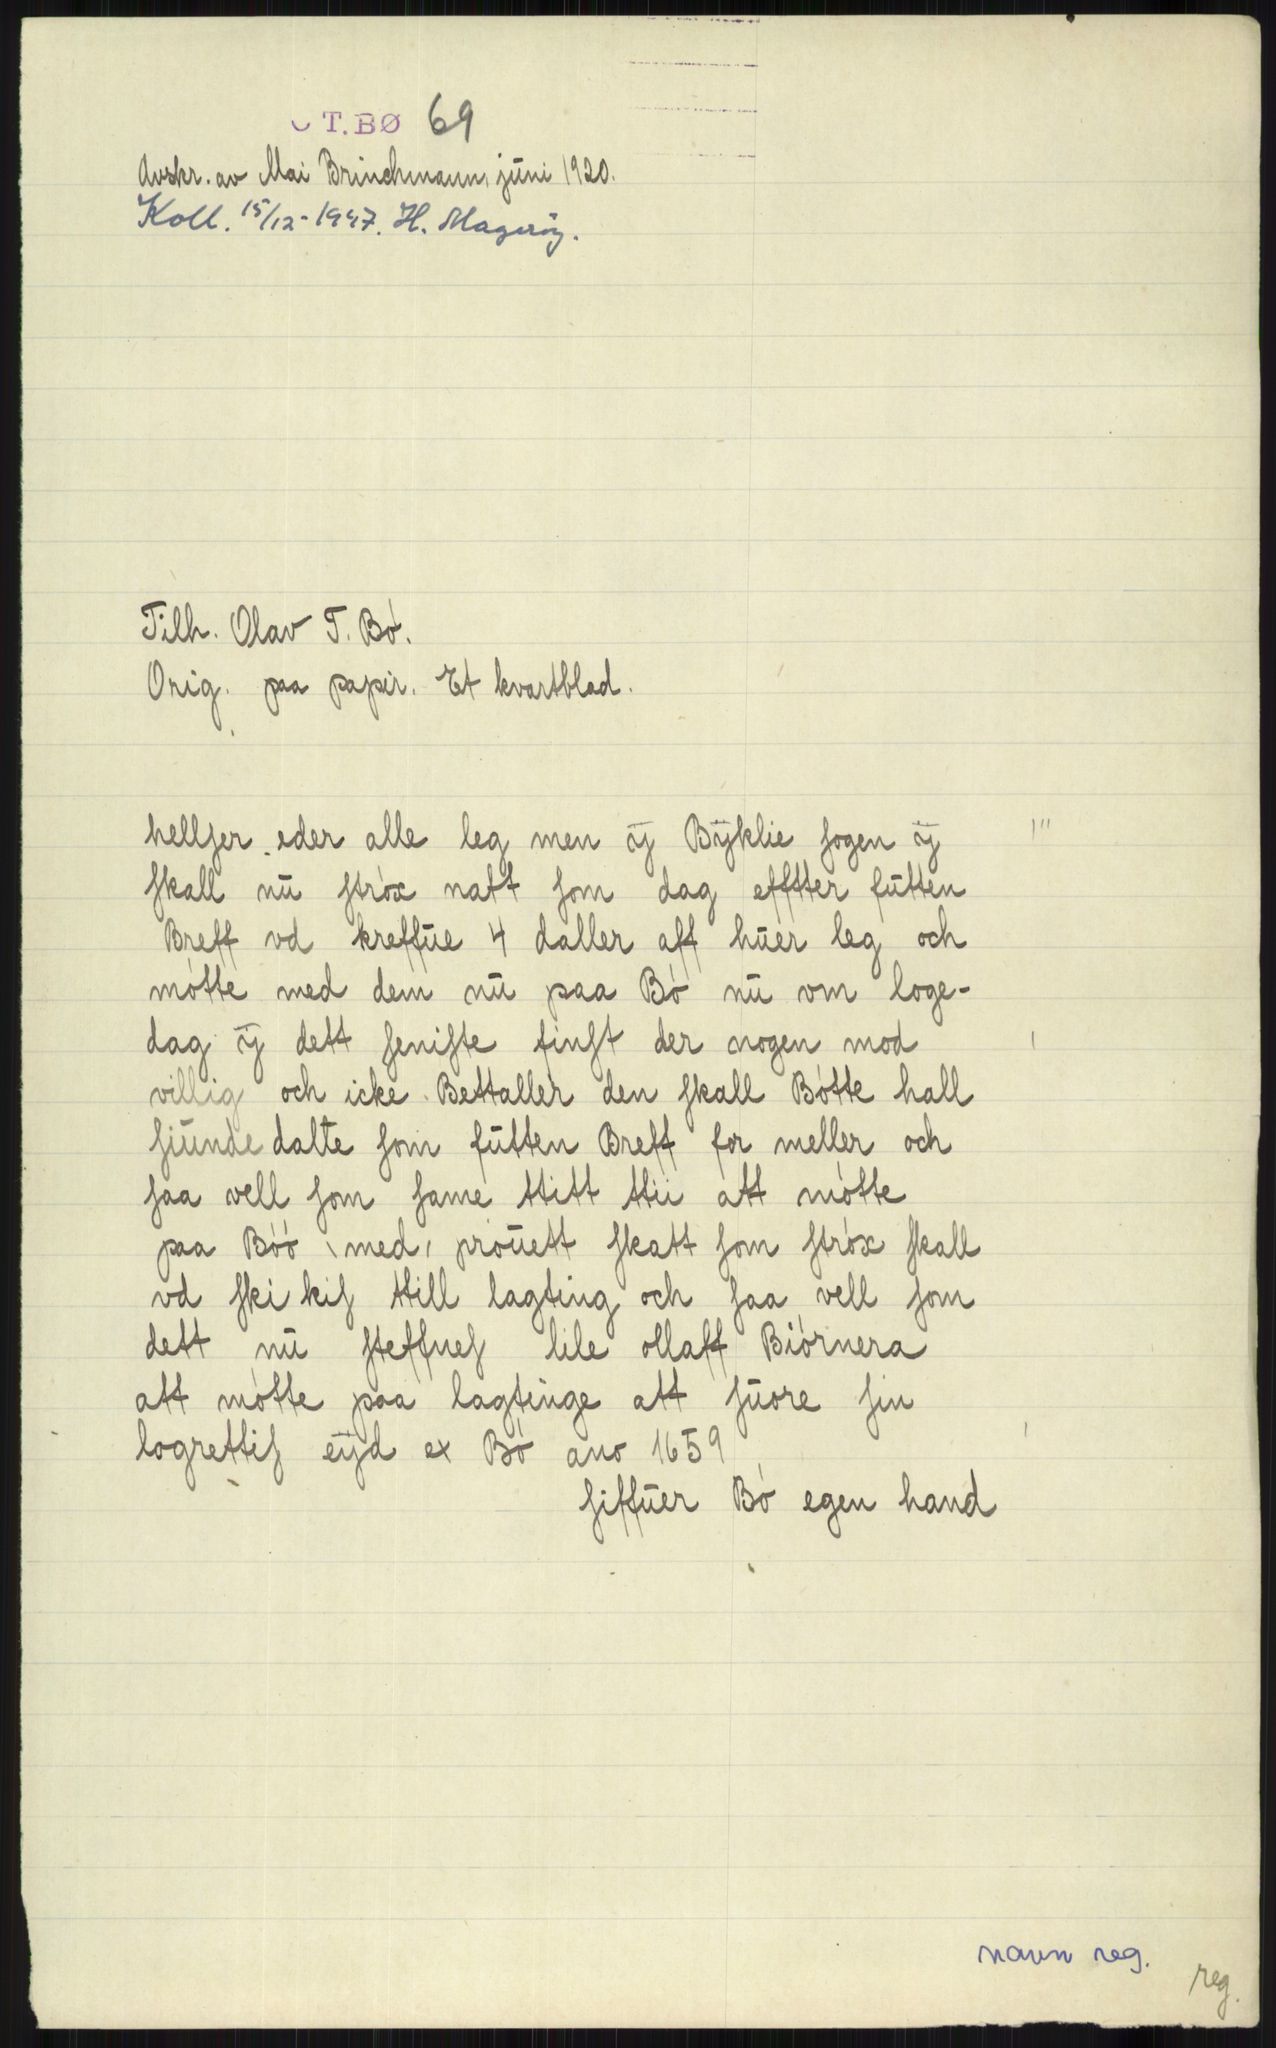 T. BØ 69
Avskr. av Mai Brinchmann, juni 1920.
Koll. 15/12-1947. H. Magerøy.
Tilh. Olav T. Bó.
Orig. paa papir. Et kvartblad.
hellſer eder alle leg men ÿ Bÿklie ſogen ÿ
ſkall nu ſtróx natt ſom dag efftter futten
Breff vd kreffue 4 daller aff huer leg och
mótte med dem nu paa Bó nu om loge-
dag ÿ dett ſeniſte finſt der nogen mod
villig och icke Bettaller den ſkall Bótte hall
ſiunde dalte ſom futten Breff for meller och
ſaa vell ſom ſame ttitt ttii att mótte
paa Bóó med, prouett ſkatt ſom ſtróx ſkall
vd ſki kiſ ttill lagting och ſaa vell ſom
dett nu ſteffneſ lile ollaff Biórnera
att mótte paa lagtinge att ſuore ſin
logrettiſ eÿd ex Bó ano 1659
ſiffuer Bó egen hand
navn reg.
reg.